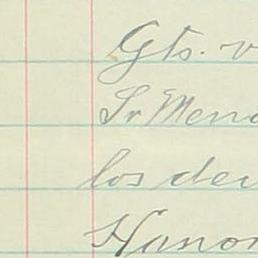 Gts. v
Sr Mend
los der
Honor